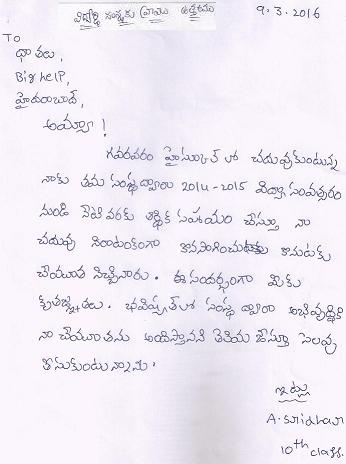 విద్యార్థి సంస్థకు వ్రాయు ఉత్తరము
9.3.2016
To
దాతలు,
Big help,
హైదరాబాద్,
అయ్యా !
గవరవరం హైస్కూల్ లో చదువుకుంటున్న
నాకు తమ సంస్థ ద్వారా 2014-2015 విద్యా సంవత్సరం
నుండి నేటి వరకు ఆర్థిక సహాయం చేస్తూ నా
చదువు నిరాటంకంగా కొనసాగించుటకు
చేయూత నిచ్చినారు. ఈ సందర్భంగా మీకు
కృతజ్ఞతలు. భవిష్యత్ లో సంస్థ ద్వారా అభివృద్ధికి
నా చేయూతను అందిస్తానని తెలియ జేస్తూ సెలవు
తీసుకుంటున్నాను.
ఇట్లు
A. Sridhar
10th class.